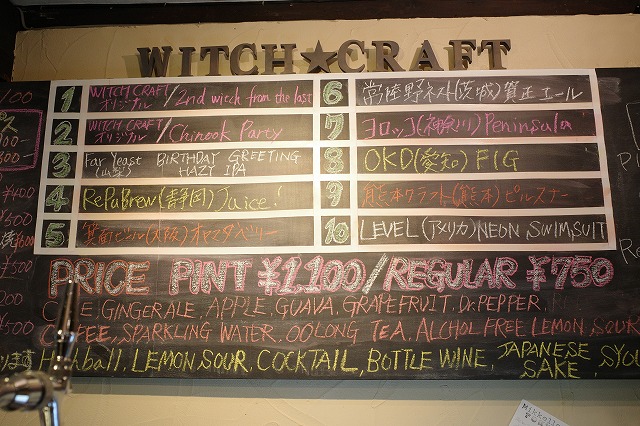 WITCH★CRAFT
1 WITCH CRAFT オリジナル/2nd witch from the last
2 WITCH CRAFT オリジナル/Chinook Party
3 Far Yeast (山梨) BIRTHDAY GREETING HAZY IPA
4 RePuBrew(静岡)Juice!
5 箕面ビール(大阪)
6 常陸野ネスト(茨城)賀正エール
7 ヨロッコ(神奈川)Peninsula
8 OKD(愛知)FIG
9 熊本クラフト(熊本)ピルスナー
10 LEVEL(アメリカ)NEON SWIM SUIT
PRICE PINT ¥1,100/REGULAR ¥750
GINGERALE, APPLE, GUAVA, GRAPEFRUIT, Dr.PEPPER,
SPARKLING WATER, OOLONG TEA, ALCHOL FREE LEMON
LEMON SOUR, COCKTAIL, BOTTLE WINE, JAPANESE SAKE